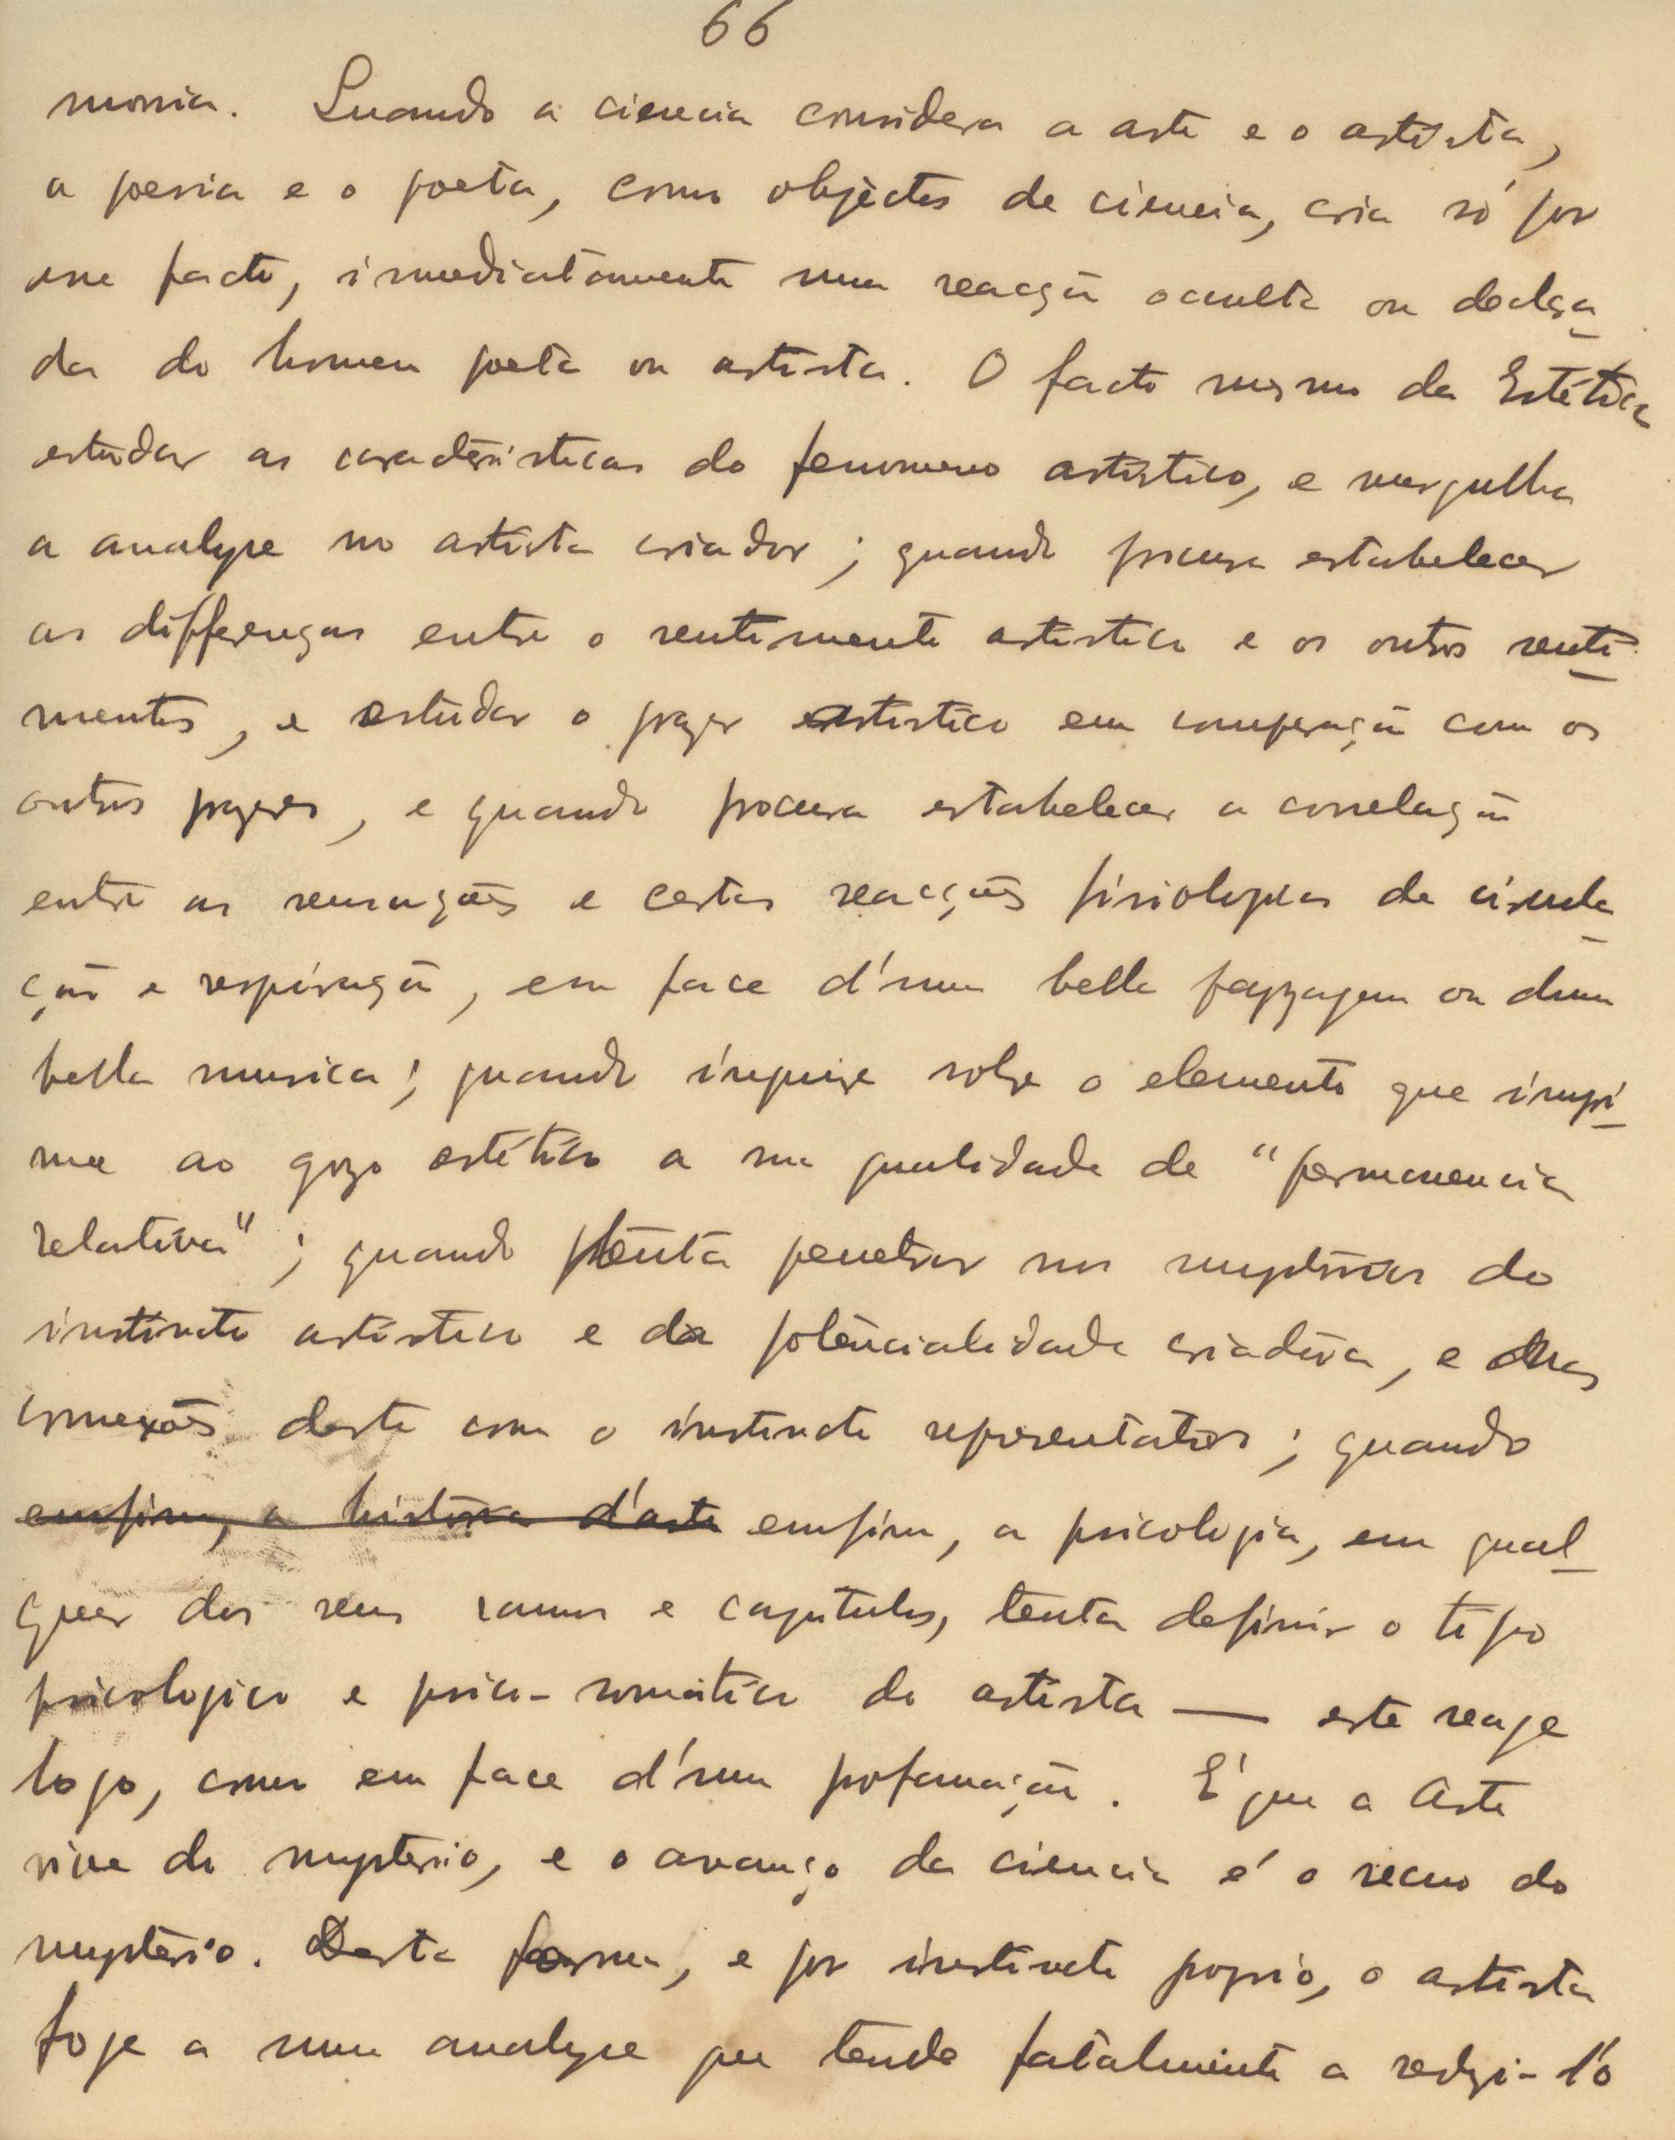 66
monia. Quando a ciencia considera a arte e o artista,
a poesia e o poeta, como objectos de ciencia, cria só por
esse facto, immediatamente uma reacção occulta ou declara
da do homem poeta ou artista. O facto mesmo da Estética
estudar as caracteristicas do fenomeno artistico, e mergulha
a analyse no artista criador; quando procura estabelecer
as differenças entre o sentimento artistico e os outros senti
mentos, e estudar o prazer artistico em comparação com os
outros prazeres, e quando procura estabelecer a correlação
entre as sensações e certas reacções fisiologicas de circula
ção e respiração, em face d'uma bella payzagem ou duma
bella musica; quando inquire sobre o elemento que impri-
me ao gozo estético a sua qualidade de "permanencia
relativa"; quando tenta penetrar nos mysterios do
instincto artistico e da potencialidade criadora, e das
connexões deste com o instincto representativo; quando
emfim, a historia d'arte emfim, a psicologia, em qual-
quer dos seus ramos e capitulos, tenta definir o tipo
psicologico e psico-somático do artista — este reage
logo, como em face d'uma profanação. É que a Arte
vive do mysterio, e o avanço da ciencia é o recuo do
mysterio. Desta forma, e por instincto proprio, o artista
foge a uma analyse que tende fatalmente a reduzi-l'o